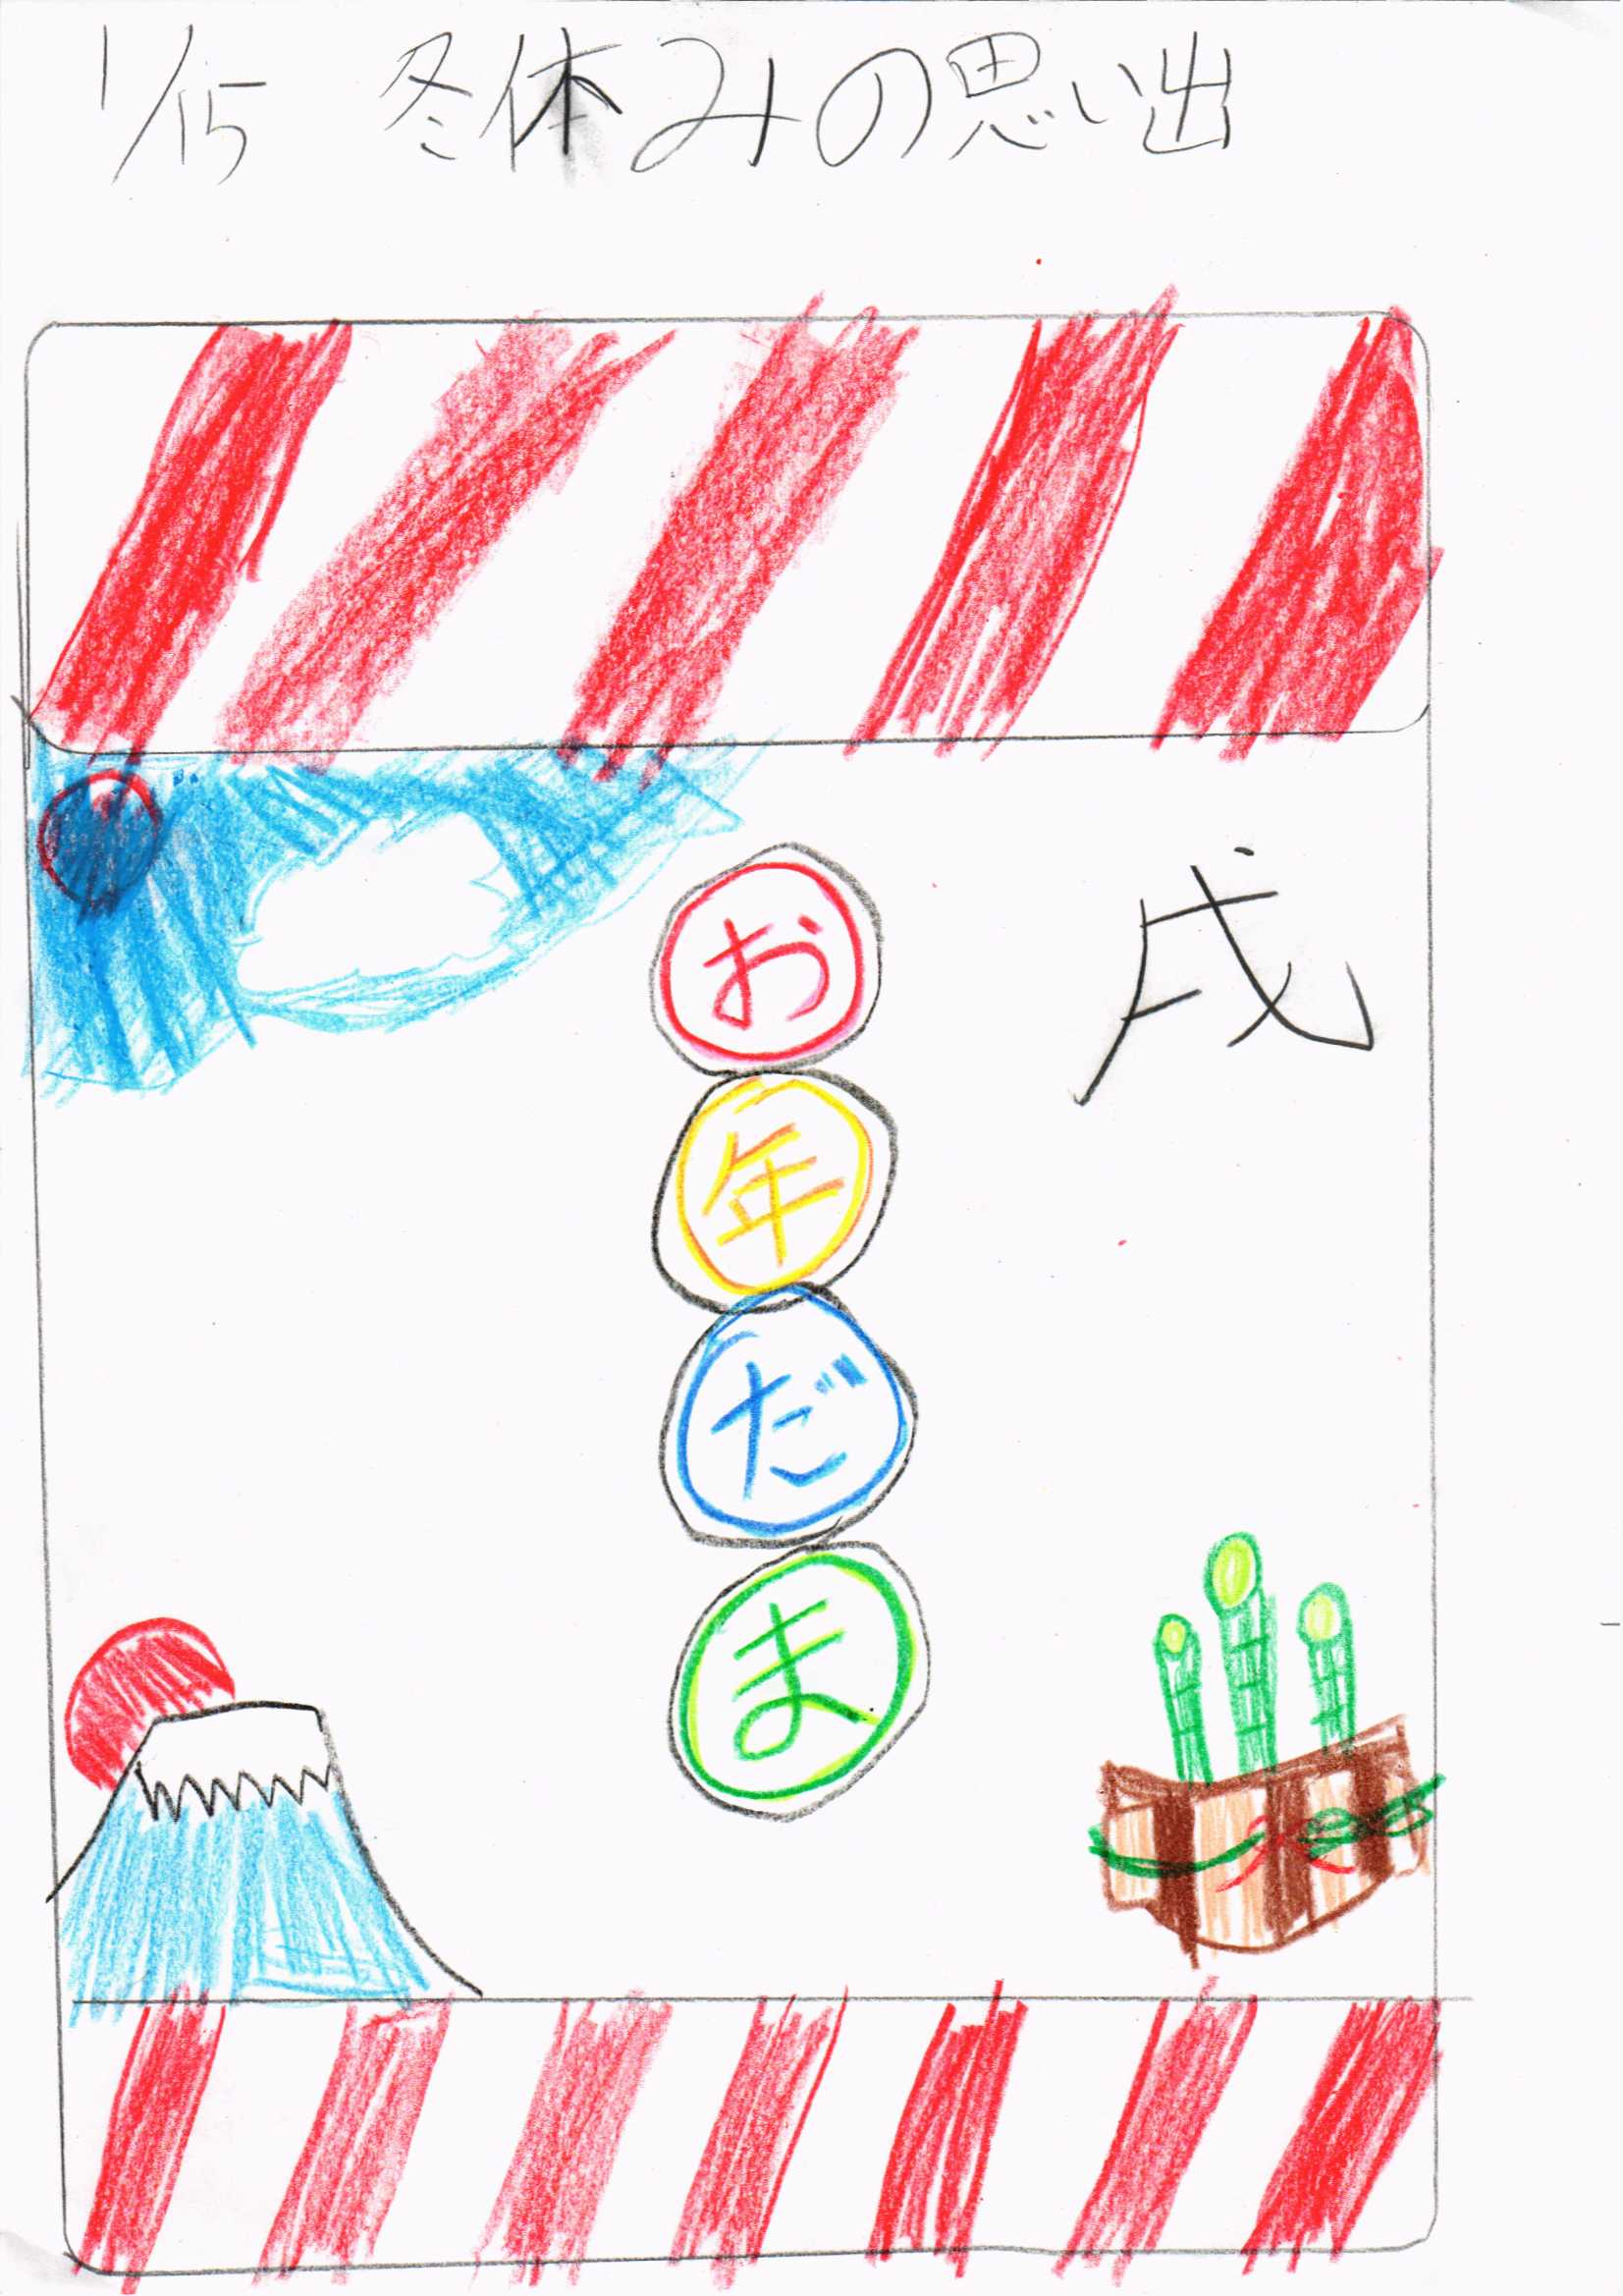 1/15 冬休みの思い出
お年だま
戌